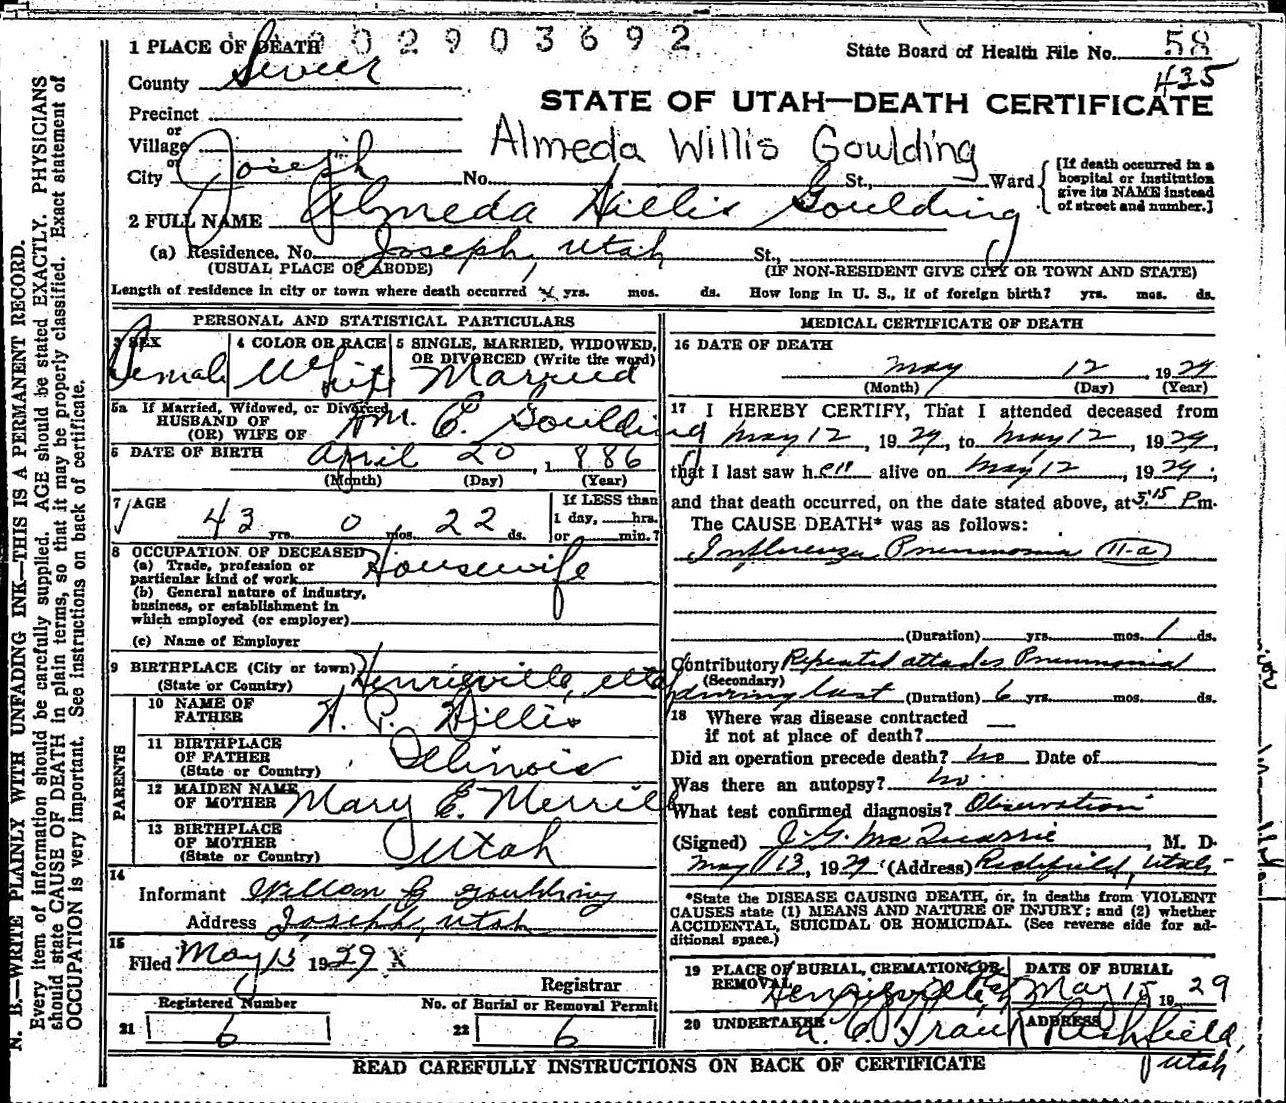 1 PLACE OF DEATH 0 0 2 9 0 3 6 9 2 State Board of Health File No. 58
County Sevier 435
STATE OF UTAH—DEATH CERTIFICATE
Precinct
or
Village
or
Almeda Willis Goulding
City Joseph No. St., Ward
[If death occurred in a
hospital or institution
give its NAME instead
of street and number.]
2 FULL NAME Almeda Willis Goulding
(a) Residence. No. Joseph, Utah St.,
(USUAL PLACE OF ABODE) (IF NON-RESIDENT GIVE CITY OR TOWN AND STATE)
Length of residence in city or town where death occurred yrs. mos. ds. How long in U. S., if of foreign birth? yrs. mos. ds.
PERSONAL AND STATISTICAL PARTICULARS
3 SEX 4 COLOR OR RACE 5 SINGLE, MARRIED, WIDOWED,
OR DIVORCED (Write the word)
Female White Married
5a If Married, Widowed, or Divorced
HUSBAND OF
(OR) WIFE OF Wm. E. Goulding
6 DATE OF BIRTH April 20, 1886
(Month) (Day) (Year)
7 AGE If LESS than
43 yrs. 0 mos. 22 ds. 1 day, hrs.
or min.?
8 OCCUPATION OF DECEASED
(a) Trade, profession or
particular kind of work Housewife
(b) General nature of industry,
business, or establishment in
which employed (or employer)
(c) Name of Employer
9 BIRTHPLACE (City or town) Henrieville, Utah
(State or Country)
PARENTS
10 NAME OF
FATHER W. P. Willis
11 BIRTHPLACE
OF FATHER Illinois
(State or Country)
12 MAIDEN NAME
OF MOTHER Mary E. Merrill
13 BIRTHPLACE
OF MOTHER Utah
(State or Country)
14
Informant Goulding
Address Joseph, Utah
15
Filed May 15 1929 X
Registrar
Registered Number No. of Burial or Removal Permit
21 6 22 6
MEDICAL CERTIFICATE OF DEATH
16 DATE OF DEATH
May 12, 1929
(Month) (Day) (Year)
17 I HEREBY CERTIFY, That I attended deceased from
May 12, 1929, to May 12, 1929,
that I last saw her alive on May 12, 1929;
and that death occurred, on the date stated above, at 5:15 P.m.
The CAUSE DEATH* was as follows:
Influenza Pneumonia (11-a)
(Duration) yrs. mos. 1 ds.
Contributory Repeated attacks Pneumonia
(Secondary)
during last (Duration) 6 yrs. mos. ds.
18 Where was disease contracted
if not at place of death? —
Did an operation precede death? No Date of
Was there an autopsy? No
What test confirmed diagnosis? Observation
(Signed) J. G. McQuarrie, M. D.
May 13, 1929 (Address) Richfield, Utah
*State the DISEASE CAUSING DEATH, or, in deaths from VIOLENT
CAUSES state (1) MEANS AND NATURE OF INJURY; and (2) whether
ACCIDENTAL, SUICIDAL OR HOMICIDAL. (See reverse side for ad-
ditional space.)
19 PLACE OF BURIAL, CREMATION, OR DATE OF BURIAL
REMOVAL Henrieville, May 15 1929
20 UNDERTAKER ADDRESS
Richfield,
Utah
READ CAREFULLY INSTRUCTIONS ON BACK OF CERTIFICATE
N. B.—WRITE PLAINLY WITH UNFADING INK—THIS IS A PERMANENT RECORD.
Every item of information should be carefully supplied. AGE should be stated EXACTLY. PHYSICIANS
should state CAUSE OF DEATH in plain terms, so that it may be properly classified. Exact statement of
OCCUPATION is very important. See instructions on back of certificate.